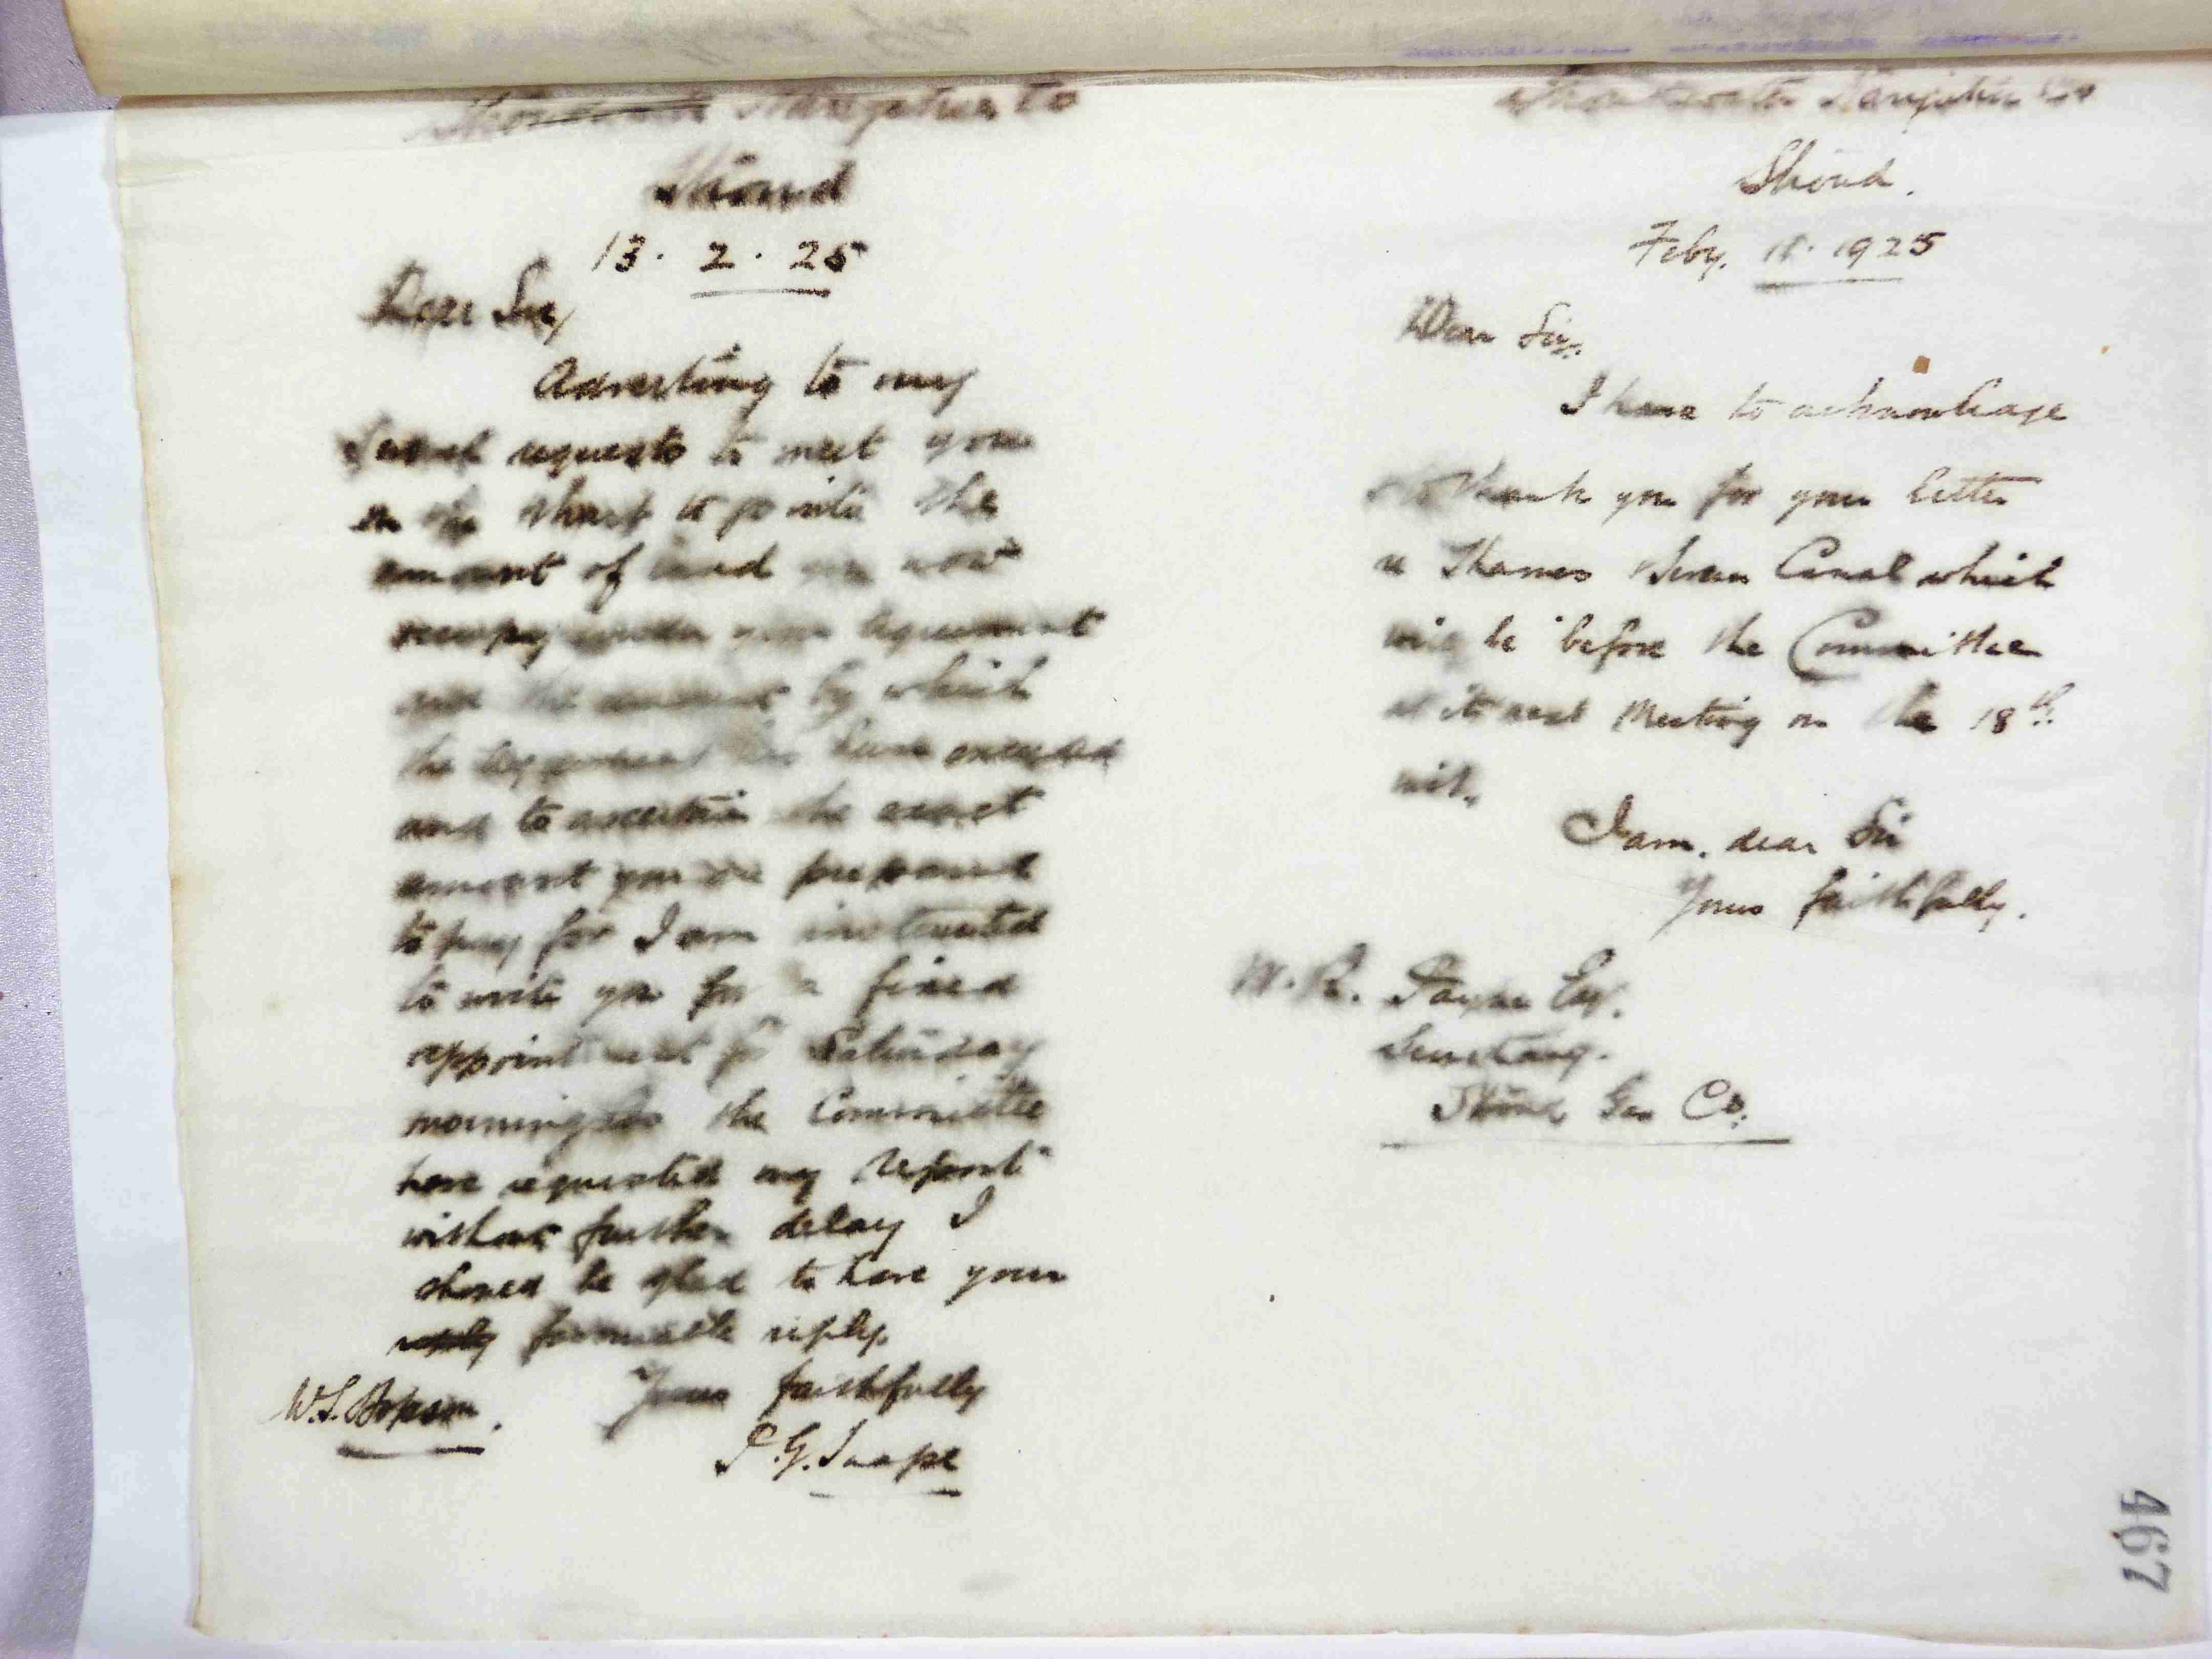 Navigation Co
Stroud
13. 2. 25
Dear Sir,
Adverting to my
several requests to meet you
on the wharf to point the
amount of land you now
occupy under your agreement
and the amount by which
the agreement has been exceeded
and to ascertain the exact
amount you are prepared
to pay for I am instructed
to write you for a fixed
appointment for Saturday
morning as the Committee
have requested my report
without further delay I
should be glad to have your
reply favourable reply.
Yours faithfully
W.S.
P.G. Snape
Stroudwater Navigation Co
Stroud.
Feby. 1925
Dear Sir,
I have to acknowledge
& thank you for your letter
re Thames & Severn Canal which
will be before the Committee
at its next Meeting on the 18th
inst.
I am, dear Sir
Yours faithfully.
W. R. Payne Esq.
Secretary.
Stroud Gas Co.
467